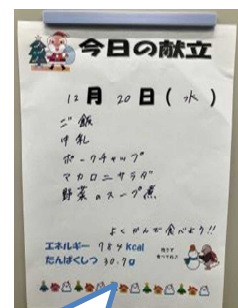 今日の献立
12月20日(水)
ご飯
牛乳
ポークチャップ
マカロニサラダ
野菜のスープ煮
よくかんで食べよう!!
エネルギー 784 kcal
たんぱくしつ 30.7g